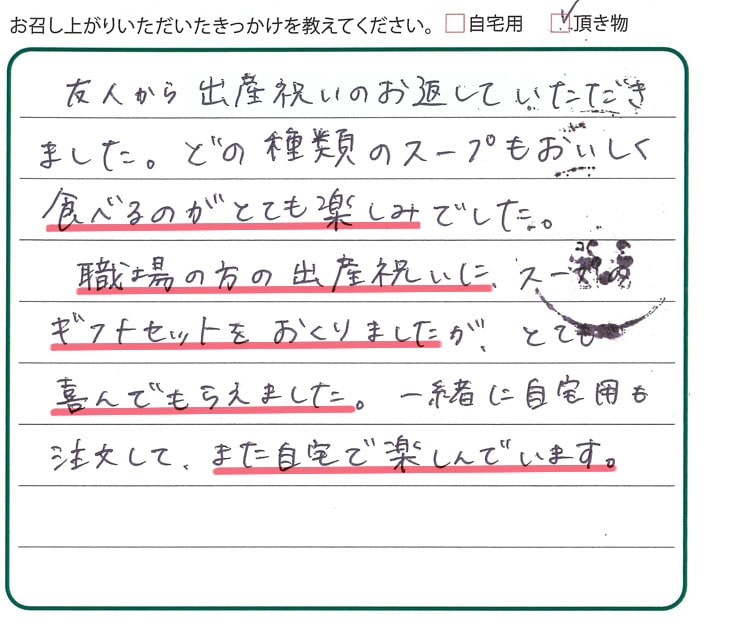 お召し上がりいただいたきっかけを教えてください。 □自宅用 ☑頂き物
友人から出産祝いのお返していただき
ました。どの種類のスープもおいしく
食べるのがとても楽しみでした。
職場の方の出産祝いに、スープの
ギフトセットをおくりましたが、とても
喜んでもらえました。一緒に自宅用も
注文して、また自宅で楽しんでいます。